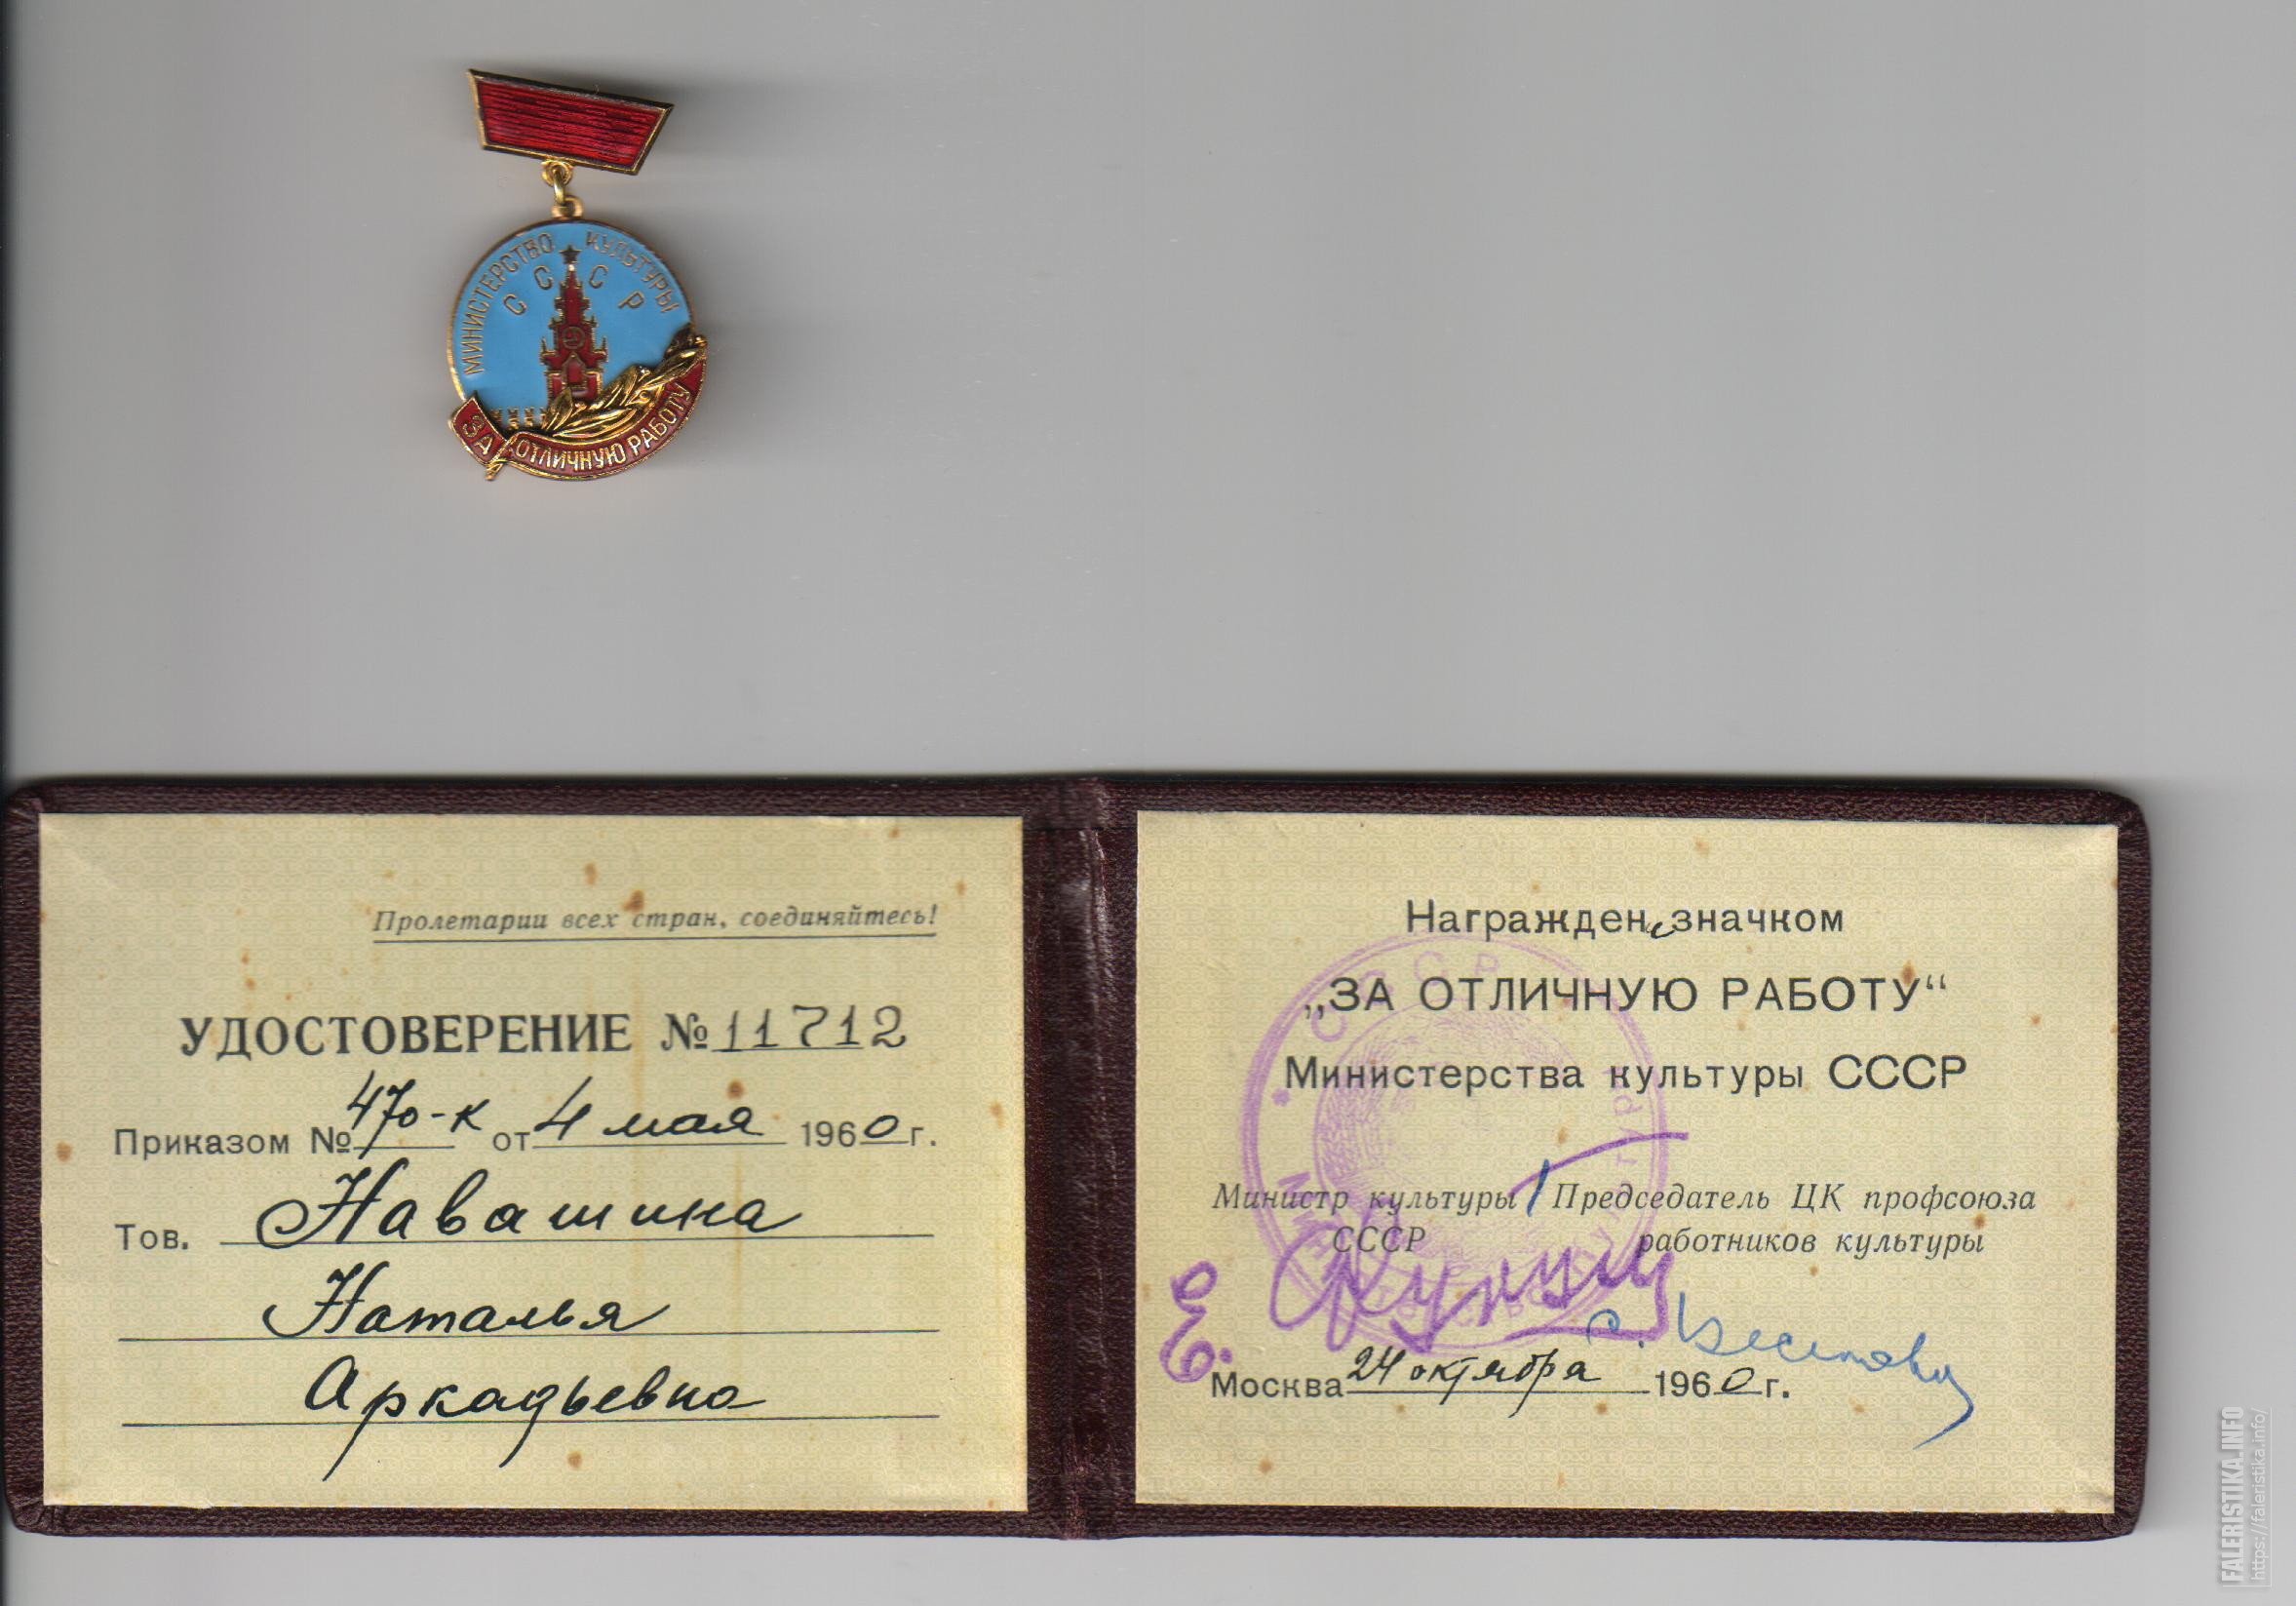 МИНИСТЕРСТВО КУЛЬТУРЫ
СССР
ЗА ОТЛИЧНУЮ РАБОТУ
Пролетарии всех стран, соединяйтесь!
УДОСТОВЕРЕНИЕ №11712
Приказом № 470-к от 4 мая 1960 г.
Тов. Навашина
Наталья
Аркадьевна
Награжден значком
„ЗА ОТЛИЧНУЮ РАБОТУ“
Министерства культуры СССР
Министр культуры
СССР
Председатель ЦК профсоюза
работников культуры
Е.
Москва 24 октября 1960 г.
FALERISTIKA.INFO
https://faleristika.info/